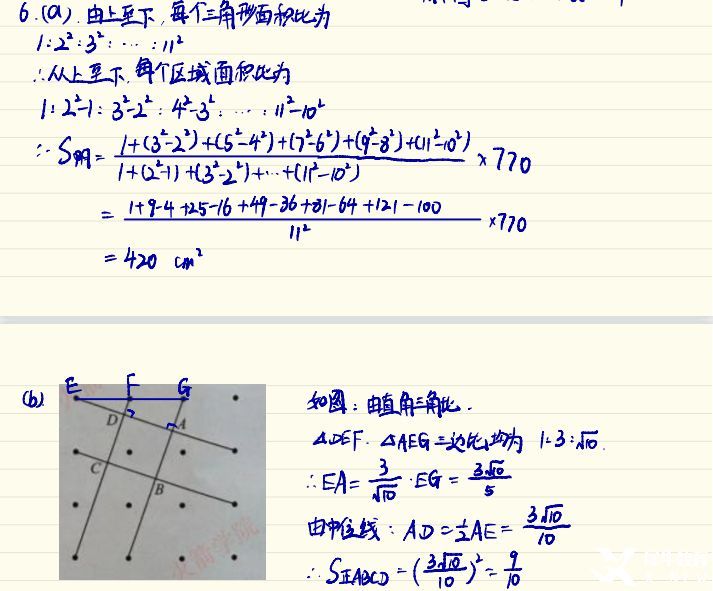 6.(a). 由上至下,每个三角形面积比为
1:2²:3²:⋯:11²
∴从上至下,每个区域面积比为
1:2²-1:3²-2²:4²-3²:⋯:11²-10²
∴S阴=1+(3²-2²)+(5²-4²)+(7²-6²)+(9²-8²)+(11²-10²)/1+(2²-1)+(3²-2²)+⋯+(11²-10²)×770
=1+9-4+25-16+49-36+81-64+121-100/11²×770
=420 cm²
(b)
E F G
D A
C B
火箭学院
如图:由直角三角比.
△DEF.△AEG三边比均为 1:3:√10.
∴EA=3/√10·EG=3√10/5
由中位线:AD=½AE=3√10/10
∴S正ABCD=(3√10/10)²=9/10